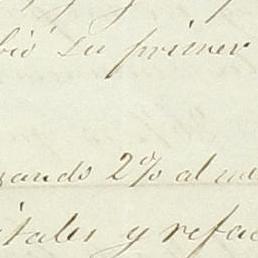 bió su primer
zando 2% al me
itales y refac